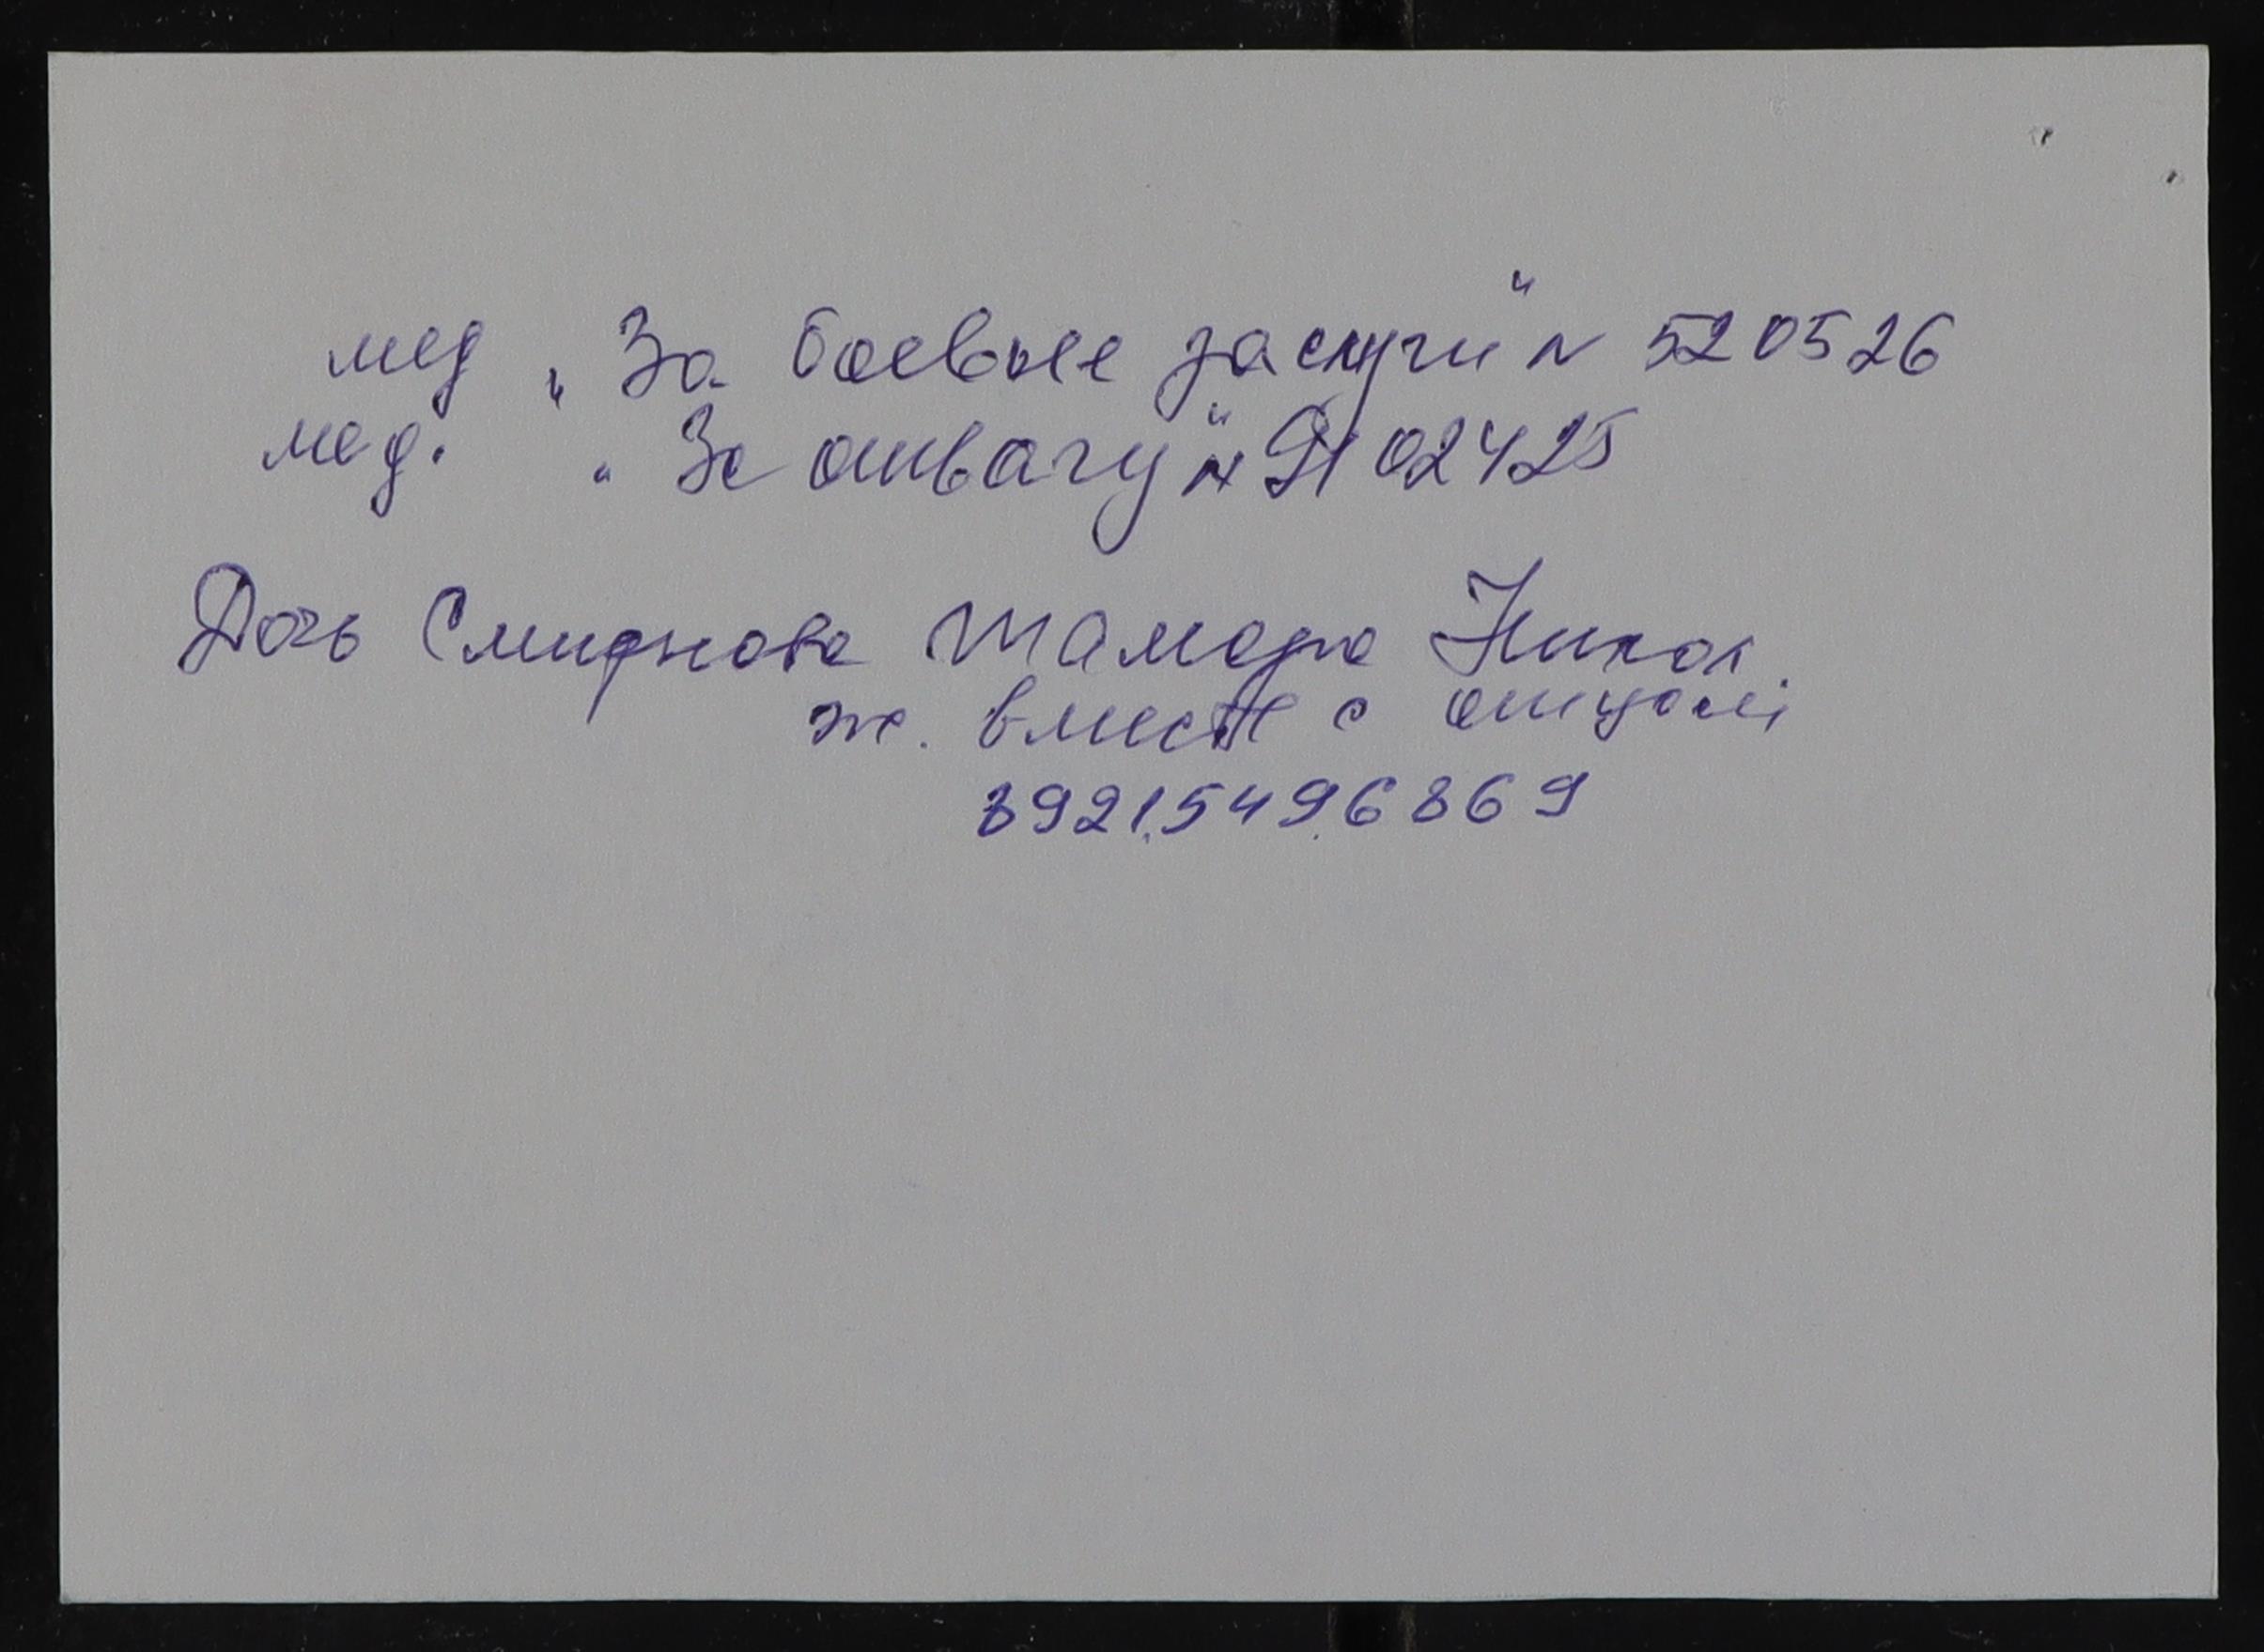 мед „За боевые заслуги“ N 520526
мед. „За отвагу“ N 02425
Дочь Смирнова Тамара Никол.
ж. вместе с отцом
8921.549.6869